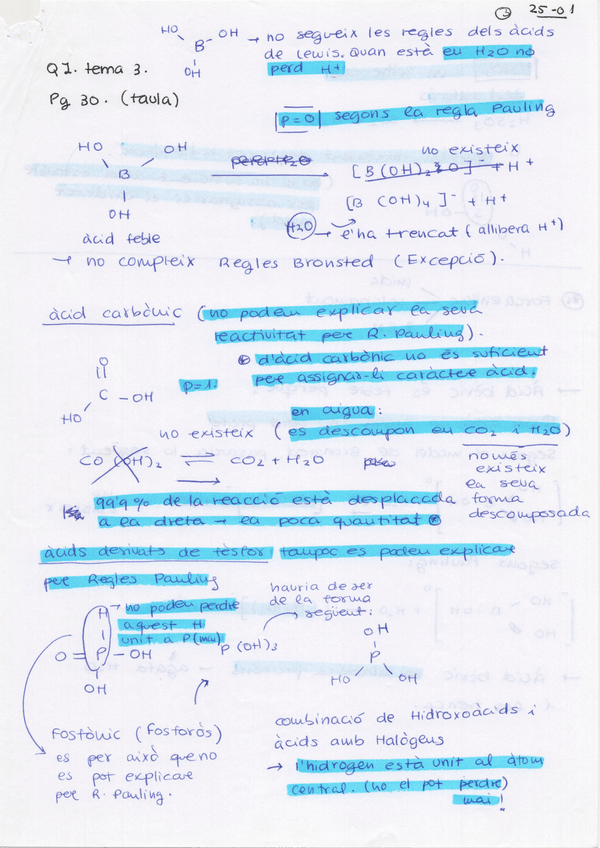 ③ 25-01
HO OH → no segueix les regles dels àcids
B de Lewis. Quan està en H2O no
OH perd H+
Q I. tema 3.
Pg 30. (taula)
|p=0| segons la regla Pauling
HO OH
B
OH
àcid feble
no existeix
+ H+
[B (OH)4]- + H+
H2O → l'ha trencat (allibera H+)
→ no compleix Regles Bronsted (Excepció).
àcid carbònic (no podem explicar la seva
reactivitat per R. Pauling).
d'àcid carbònic no és suficient
per assignar-li caràcter àcid.
O
C - OH
HO
p=1.
en aigua:
no existeix (es descompon en CO2 i H2O)
CO (OH)2 ⇌ CO2 + H2O
només
existeix
la seva
forma
descomposada
99,9% de la reacció està desplaçada
a la dreta → la poca quantitat
àcids derivats de fòsfor, tampoc es poden explicar
per Regles Pauling
H → no podem perdre
aquest H
unit a P (mai)
O = P - OH
OH
P (OH)3
hauria de ser
de la forma
següent:
OH
P
HO OH
Fosfònic (fosforós)
es per això que no
es pot explicar
per R. Pauling.
combinació de Hidroxoàcids i
àcids amb Halògens
→ l'hidrogen està unit al àtom
central. (no el pot perdre)
mai!